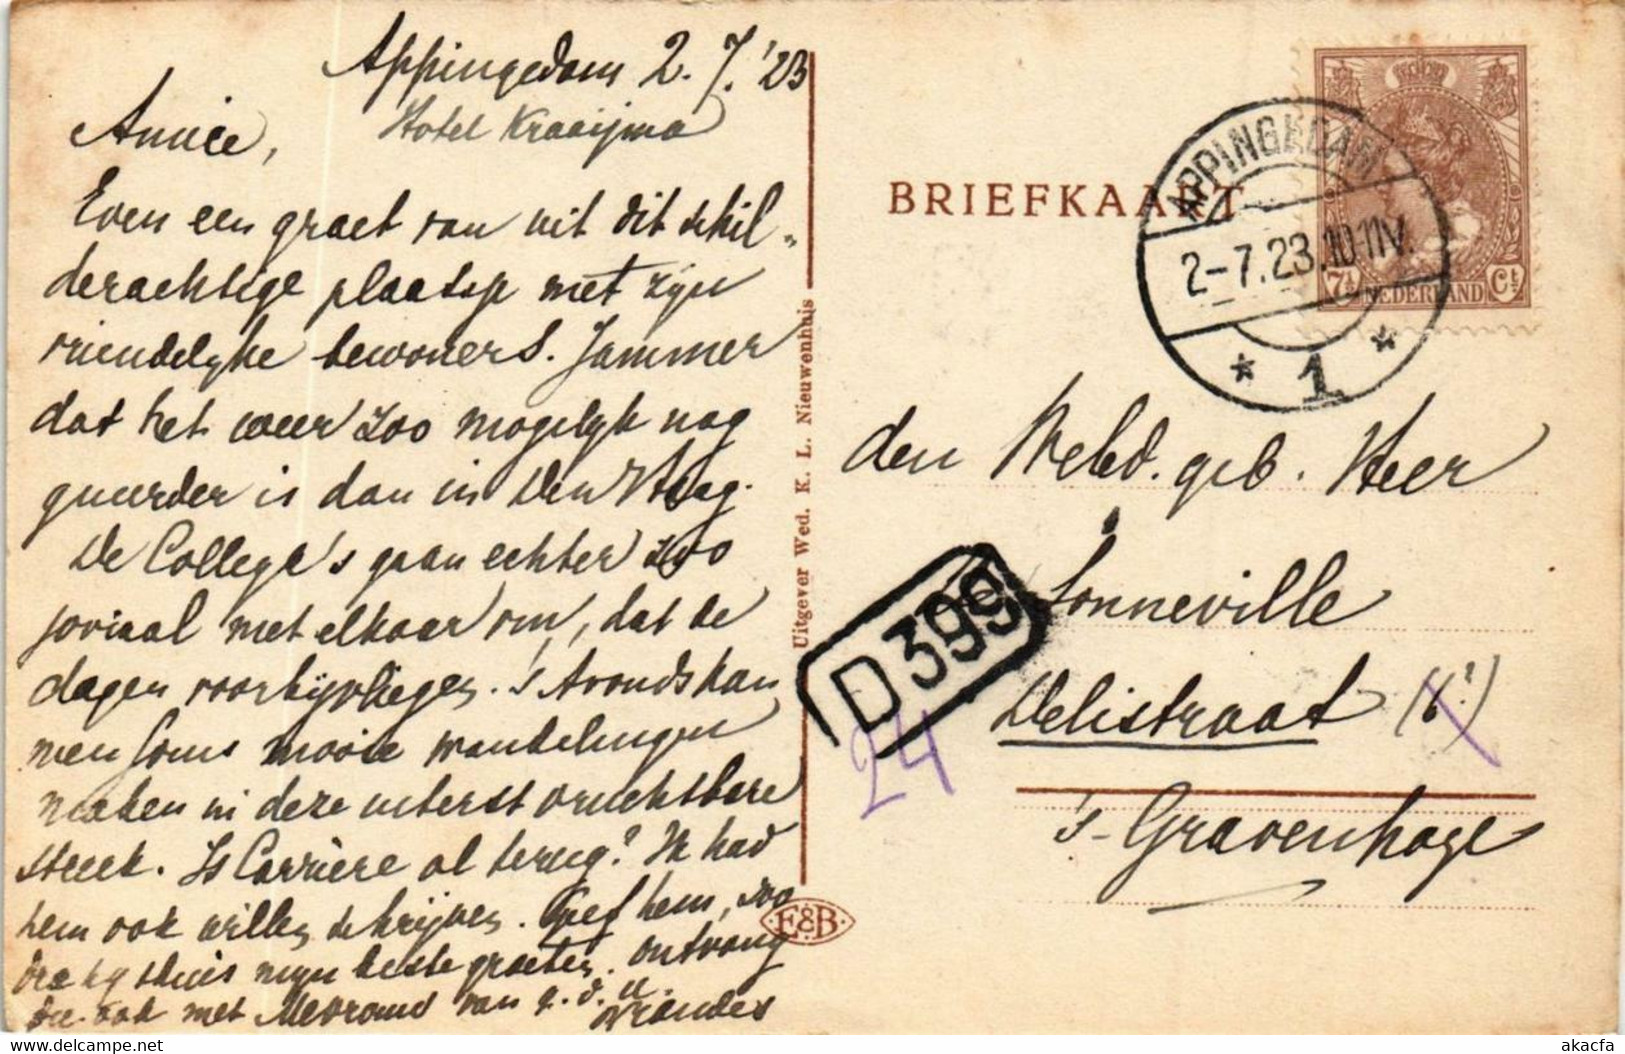 Appingedam 2.7.'23
Hotel Kraaijma
Annie,
Even een groet van uit dit schil-
derachtige plaatsje met zijn
vriendelijke bewoners. Jammer
dat het weer zoo mogelijk nog
guurder is dan in Den Haag.
De Collega's gaan echter zoo
joviaal met elkaar om, dat de
dagen voorbijvliegen. 's Avonds kan
men soms mooie wandelingen
maken in deze uiterst vruchtbare
streek. Is Carrière al terug? Ik had
hem ook willen schrijven. Geef hem, zoo
hij thuis mijn beste groeten. ontvang
die ook met Mevrouw van
BRIEFKAART
APPINGEDAM
2-7.23.10-11V.
1
7½ NEDERLAND Ct
den WelEd. geb. Heer
Sonneville
Delistraat (6?)
's-Gravenhage
D 399
24
Uitgever Wed. K. L. Nieuwenhuis
E&B
akacfa
delcampe.net